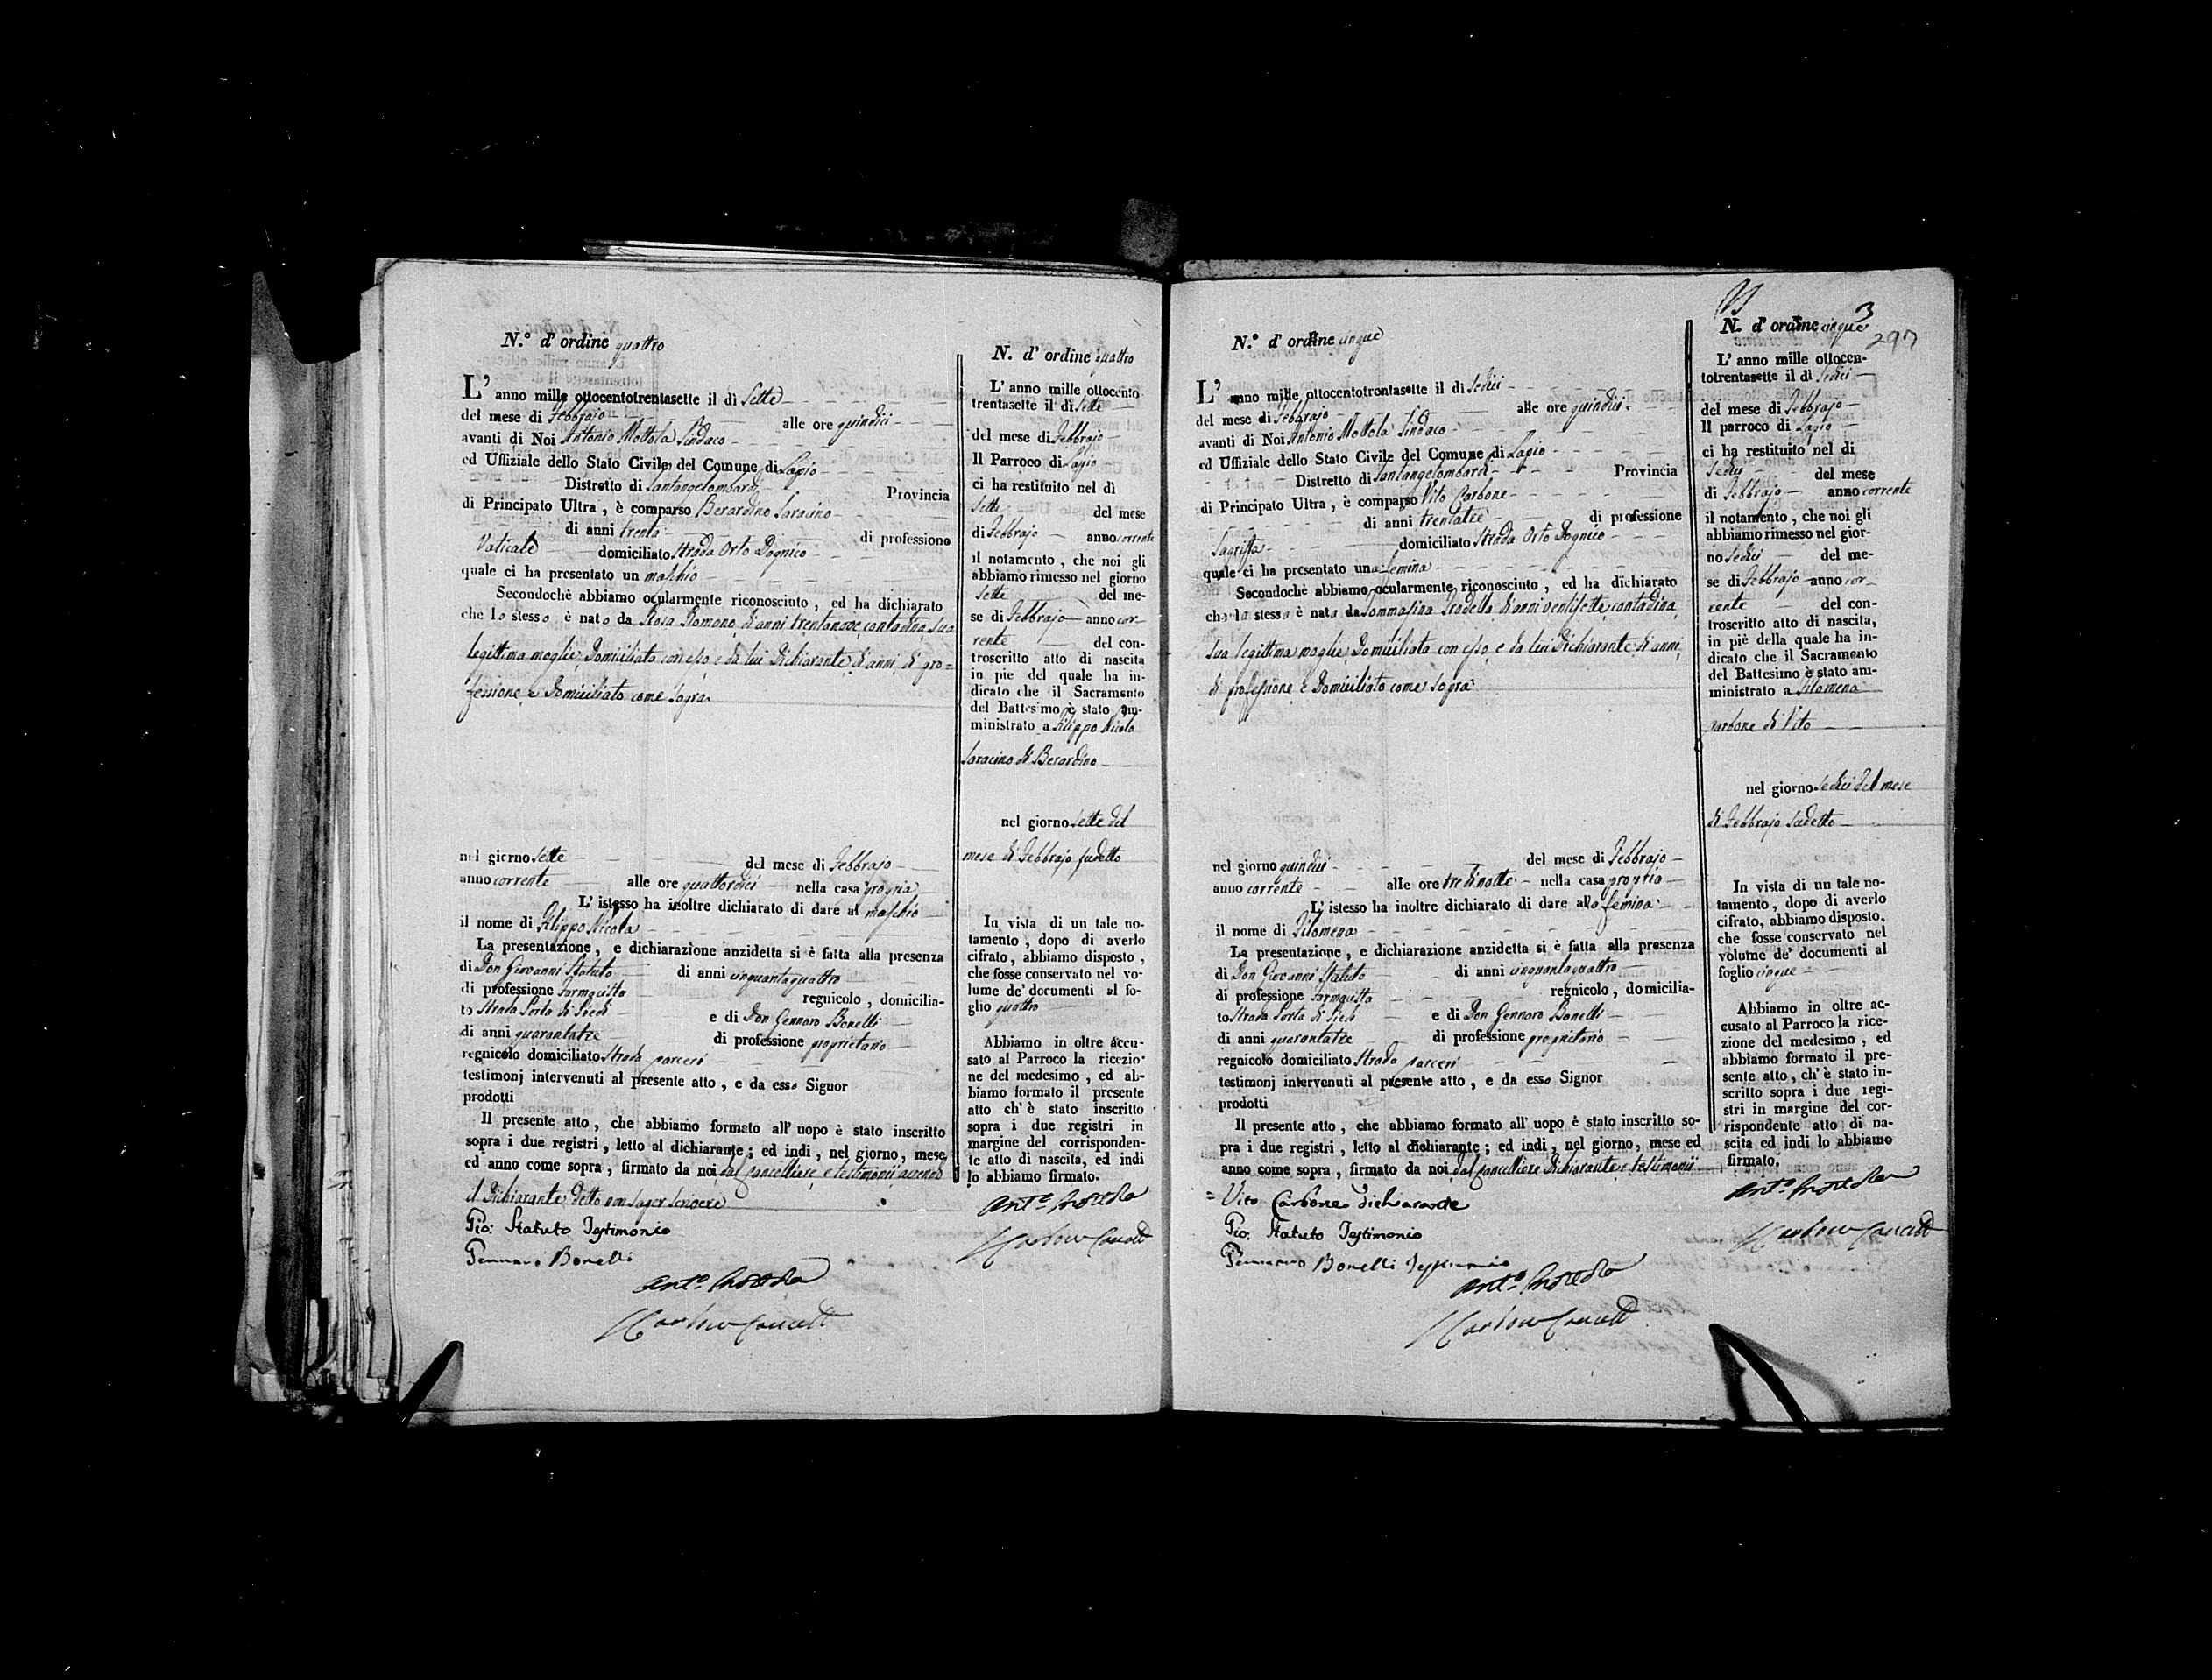 N.° d' ordine quattro
L' anno mille ottocentotrentasette il dì Sette
del mese di Febbrajo alle ore quindici
avanti di Noi Antonio Mottola Sindaco
ed Uffiziale dello Stato Civile del Comune di Lapio
Distretto di Santangelombardi Provincia
di Principato Ultra, è comparso Berardino Saracino
di anni trenta di professione
Vaticale domiciliato Strada Orto Dognico
quale ci ha presentato un maschio
Secondochè abbiamo ocularmente riconosciuto, ed ha dichiarato
che lo stesso è nato da Rosa Romano di anni trentanove contadina sua
legittima moglie Domiciliata con esso e da lui Dichiarante di anni di pro=
fessione e Domiciliato come sopra
nel giorno Sette del mese di Febbrajo
anno corrente alle ore quattordici nella casa propria
L' istesso ha inoltre dichiarato di dare al maschio
il nome di Filippo Nicola
La presentazione, e dichiarazione anzidetta si è fatta alla presenza
di Don Giovanni Statuto di anni cinquantaquattro
di professione Farmacista regnicolo, domicilia-
to Strada Porta di Piedi e di Don Gennaro Bonelli
di anni quarantatre di professione proprietario
regnicolo domiciliato Strada
testimonj intervenuti al presente atto, e da esso Signor
prodotti
Il presente atto, che abbiamo formato all' uopo è stato inscritto
sopra i due registri, letto al dichiarante; ed indi, nel giorno, mese,
ed anno come sopra, firmato da noi dal Cancelliere e testimonii avendo
il Dichiarante detto non saper scrivere
Gio: Statuto Testimonio
Gennaro Bonelli
Ant.o Mottola
N. d' ordine quattro
L' anno mille ottocento
trentasette il dì Sette
del mese di Febbrajo
Il Parroco di Lapio
ci ha restituito nel dì
Sette del mese
di Febbrajo anno corrente
il notamento, che noi gli
abbiamo rimesso nel giorno
Sette del me-
se di Febbrajo anno cor-
rente del con-
troscritto atto di nascita
in pie del quale ha in-
dicato che il Sacramento
del Battesimo è stato am-
ministrato a Filippo Nicola
Saracino di Berardino
nel giorno Sette del
mese di Febbrajo sudetto
In vista di un tale no-
tamento, dopo di averlo
cifrato, abbiamo disposto,
che fosse conservato nel vo-
lume de' documenti al fo-
glio quattro
Abbiamo in oltre accu-
sato al Parroco la ricezio-
ne del medesimo, ed ab-
biamo formato il presente
atto ch' è stato inscritto
sopra i due registri in
margine del corrisponden-
te atto di nascita, ed indi
lo abbiamo firmato.
Ant.o Mottola
N.° d' ordine cinque
L' anno mille ottocentotrentasette il dì Sedici
del mese di Febbrajo alle ore quindici
avanti di Noi Antonio Mottola Sindaco
ed Uffiziale dello Stato Civile del Comune di Lapio
Distretto di Santangelombardi Provincia
di Principato Ultra, è comparso Vito Carbone
di anni trentatre di professione
Sagrista domiciliato Strada Orto Dognico
quale ci ha presentato una femina
Secondochè abbiamo ocularmente riconosciuto, ed ha dichiarato
che la stessa è nata da Tommasina di anni ventisette contadina
sua legittima moglie Domiciliata con esso e da lui Dichiarante di anni
di professione e Domiciliato come sopra
nel giorno quindici del mese di Febbrajo
anno corrente alle ore tre di notte nella casa propria
L' istesso ha inoltre dichiarato di dare alla femina
il nome di Filomena
La presentazione, e dichiarazione anzidetta si è fatta alla presenza
di Don Giovanni Statuto di anni cinquantaquattro
di professione Farmacista regnicolo, domicilia-
to Strada Porta di Piedi e di Don Gennaro Bonelli
di anni quarantatre di professione proprietario
regnicolo domiciliato Strada
testimonj intervenuti al presente atto, e da esso Signor
prodotti
Il presente atto, che abbiamo formato all' uopo è stato inscritto so-
pra i due registri, letto al dichiarante; ed indi, nel giorno, mese ed
anno come sopra, firmato da noi dal Cancelliere Dichiarante e testimonii
= Vito Carbone dichiarante
Gio: Statuto Testimonio
Gennaro Bonelli Testimonio
Ant.o Mottola
3
297
N. d' ordine cinque
L' anno mille ottocen-
totrentasette il dì Sedici
del mese di Febbrajo
Il parroco di Lapio
ci ha restituito nel dì
Sedici del mese
di Febbrajo anno corrente
il notamento, che noi gli
abbiamo rimesso nel gior-
no Sedici del me-
se di Febbrajo anno cor-
rente del con-
troscritto atto di nascita,
in piè della quale ha in-
dicato che il Sacramento
del Battesimo è stato am-
ministrato a Filomena
Carbone di Vito
nel giorno Sedici del mese
di Febbrajo sudetto
In vista di un tale no-
tamento, dopo di averlo
cifrato, abbiamo disposto,
che fosse conservato nel
volume de' documenti al
foglio cinque
Abbiamo in oltre ac-
cusato al Parroco la rice-
zione del medesimo, ed
abbiamo formato il pre-
sente atto, ch' è stato in-
scritto sopra i due regi-
stri in margine del cor-
rispondente atto di na-
scita ed indi lo abbiamo
firmato.
Ant.o Mottola